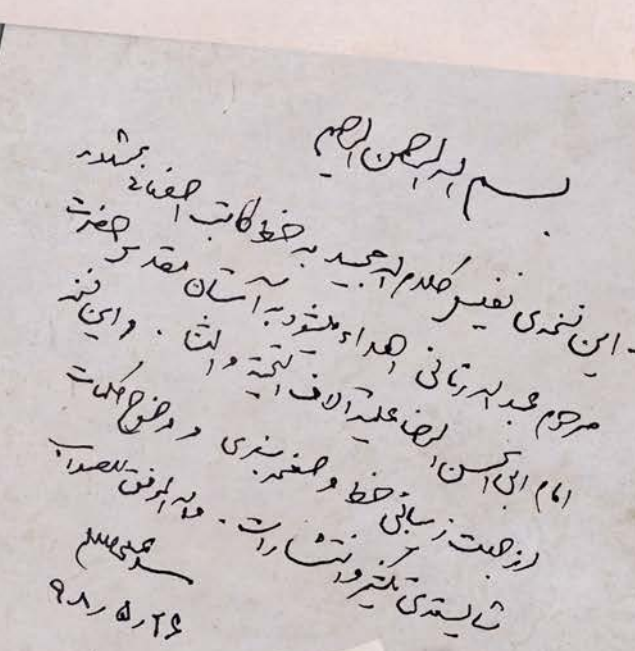 بسم الله الرحمن الرحیم
این نسخه‌ی نفیس کلام الله مجید به خط کاتب اصفهانی
مرحوم عبدالله اهداء میشود به آستان مقدس حضرت
امام ابی الحسن الرضا علیه آلاف التحیة والثنا . و این نسخه
از جهت زیبائی خط و صفحه بندی و وضوح کلمات
شایسته‌ی تکثیر و انتشار است . والله الموفق للصواب
۹۸٫۵٫۲۶